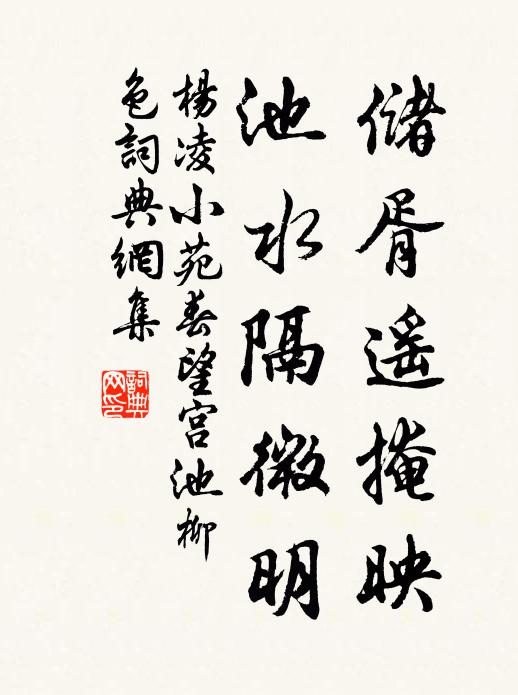 储胥遥掩映
池水隔微明
楊凌小苑春望宫池柳
色詞典網集
詞典網印